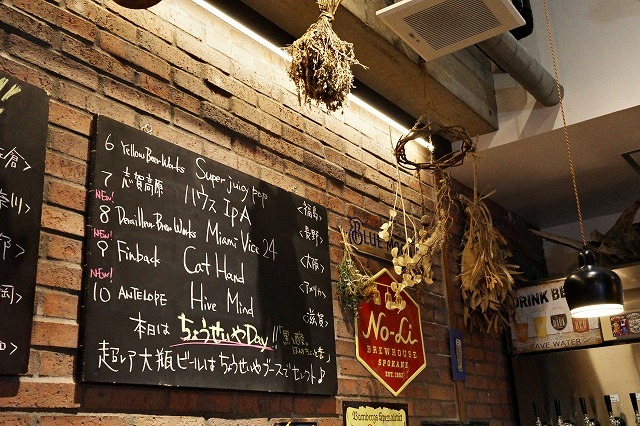 6 Yellow Beer Works Super juicy pop <福島>
7 志賀高原 ハウス IPA <長野>
NEW!
8 Derailleur Brew Works Miami Vice 24 <大阪>
NEW!
9 Finback Cat Hand <アメリカ>
NEW!
10 ANTELOPE Hive Mind <滋賀>
本日は ちょうせいやDay!!
超レア 大瓶ビールはちょうせいやブースでセレクト♪
倉>
奈川>
岡>
BLUE
No-Li
BREWHOUSE
SPOKANE
Bambergs Spezialität
DRINK BE
SAVE WATER